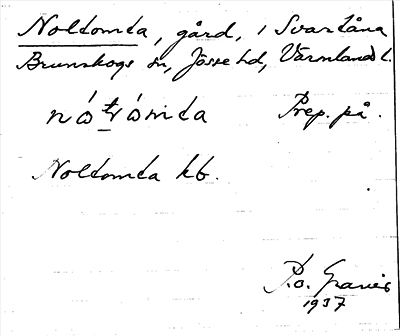 Noltomta, gård, i Svartåna
Brunskogs sn, Jösse hd, Värmlands l.
Prep. på.
Noltomta kb.
P.o.
1937